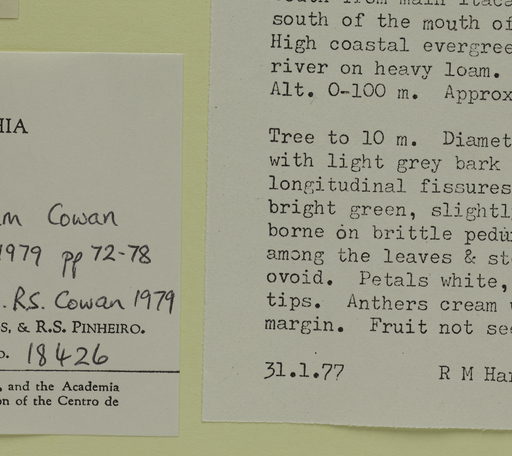 HIA
Cowan
1979 pp 72-78
. RS. Cowan 1979
S, & R.S. PINHEIRO.
O. 18426
, and the Academia
on of the Centro de
south from main Itaca
south of the mouth of
High coastal evergree
river on heavy loam.
Alt. 0-100 m. Approx
Tree to 10 m. Diamet
with light grey bark
longitudinal fissures
bright green, slightl
borne on brittle pedu
among the leaves & st
ovoid. Petals white,
tips. Anthers cream
margin. Fruit not see
31.1.77 R M Har